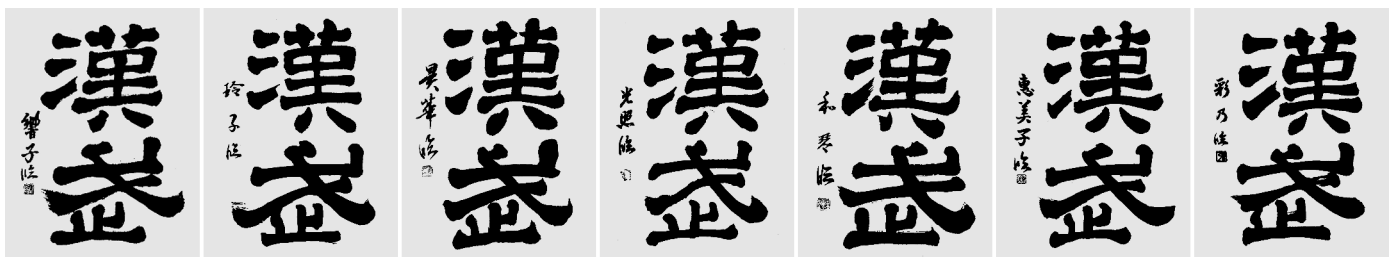 漢武
響子臨
漢武
玲子臨
漢武
昊華臨
漢武
光照臨
漢武
和琴臨
漢武
惠美子臨
漢武
彩乃臨